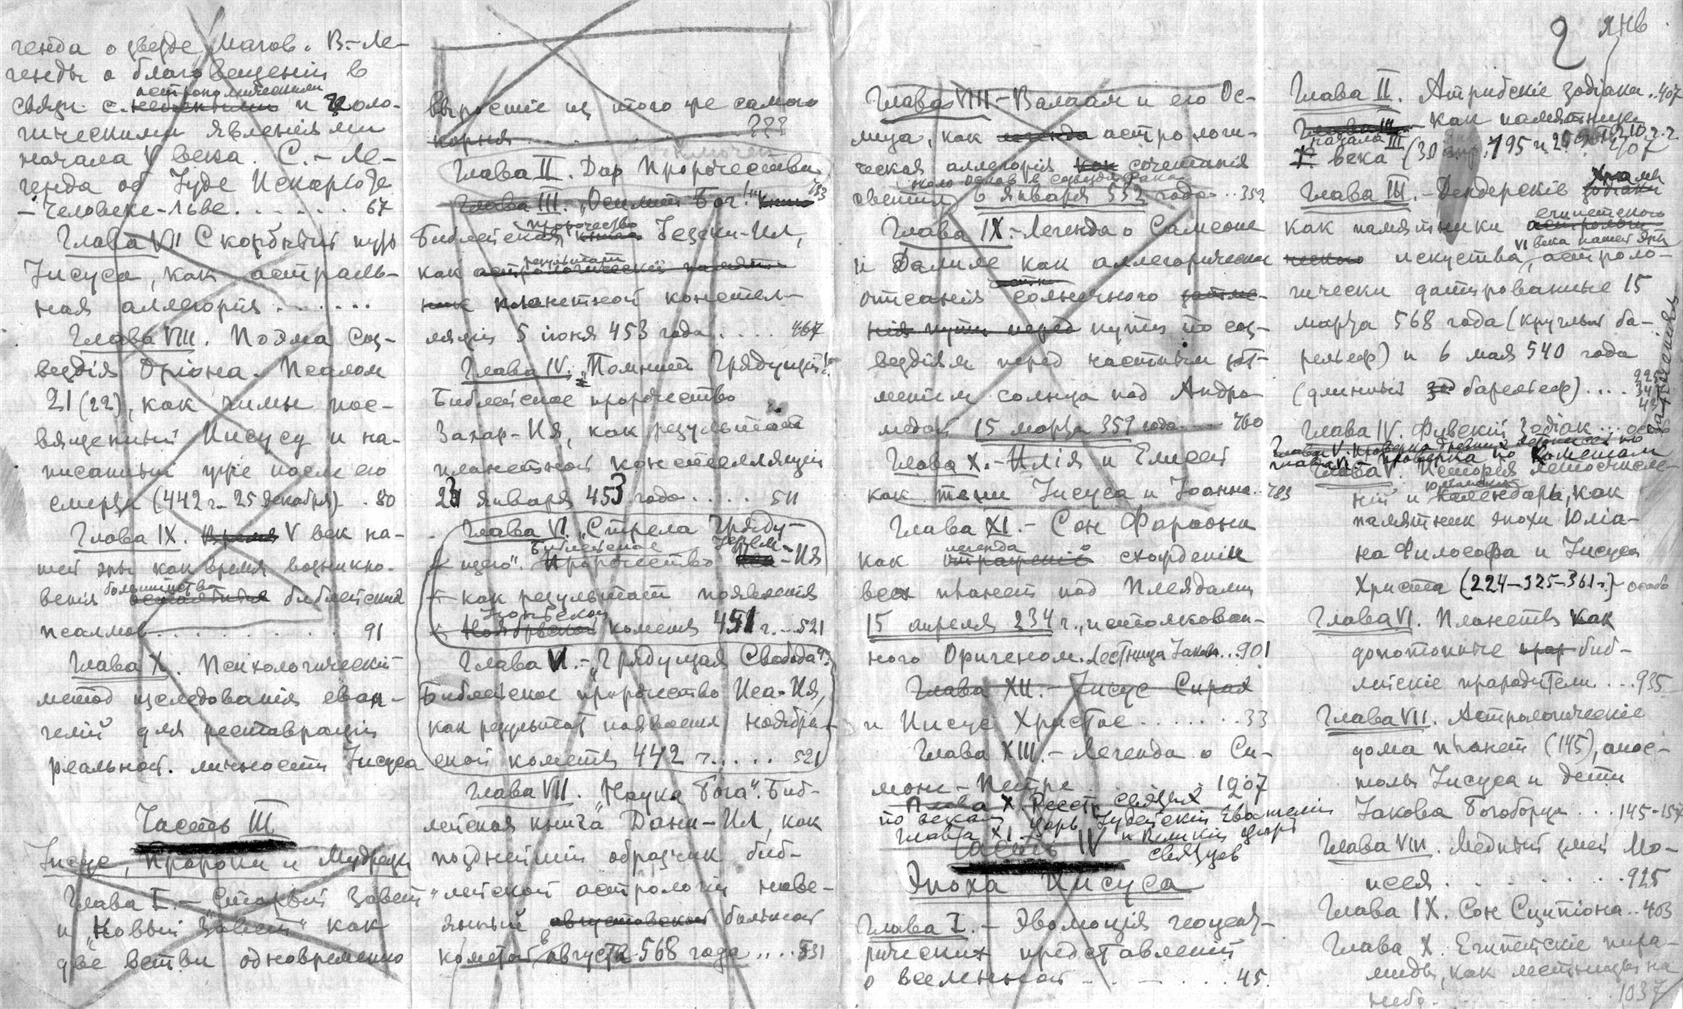 генда о звезде Магов. В.-Ле-
генды о благовещеніи в
астрономическими
связи с и
гическими явленіями
начала V века. С.-Ле-
генда об Іуде Искаріоте
– человеке-льве 67
Глава VII Скорбный путь
Іисуса, как астраль-
ная аллегорія
Глава VIII. Поэма соз-
вездія Оріона. Псалом
21 (22), как гимн пос-
вященный Иисусу и на-
писанный уже после его
смерти (442 г. 25 декабря) 80
Глава IX. Время V век на-
шей эры как время возникно-
большинства
венія библейских
псалмов 91
Глава X. Психологическій
метод изследованія еван-
гелій для реставраціи
реальной личности Іисуса
Часть III
Іисус, Пророки и Мудрецы
Глава I.– Старый Завет
и „Новый Завет" как
две ветви одновременно
выросшіе из того же самого
корня ???
Глава II. Дар Пророчества
Глава III. „Осилит Бог!" 153
пророчество
Библейская книга Іезеки-Ил,
результат
как
планетной констел-
ляціи 5 іюня 453 года 467
Глава IV. „Помнит Грядущій!"
Библейское пророчество
Захар-Ия, как результат
планетной констелляціи
23 января 453 года 511
Глава VI. „Стрела Гряду-
Библейское Іерем
щего". Пророчество -Ия
как результат появленія
кометы 451 г. 521
Глава V.– „Грядущая Свобода"
Библейское пророчество Иса-Ия,
как результат появленія ноябрь-
ской кометы 442 г. 521
Глава VII. „Наука Бога". Биб-
лейская книга Дани-Ил, как
позднейшій образчик биб-
лейской астрологіи наве-
янный августовской большой
кометой августа 568 года 531
Глава VIII – Валаам и его Ос-
лица, как легенда астрологи-
ческая аллегорія как сочетанія
светил 6 января 332 года 352
Глава IX.– Легенда о Самсоне
и Далиле как аллегорическія
описанія солнечного затме-
нія пути перед пути по соз-
вездіям перед частным зат-
меніем солнца под Андро-
медой 15 марта 359 года 760
Глава X.– Илія и Елисей
как тени Іисуса и Іоанна 783
Глава XI.– Сон Фараона
легенда
как о схожденіи
всех планет под Плеядами
15 апреля 234 г., истолкован-
ного Оригеном. Лестница Іакова 901
Глава XII.– Іисус Сирах
и Иисус Христос 33
Глава XIII.– Легенда о Си-
моне-Петре 1207
Глава X Реестр святых
по векам Царь Іудейскій Евангелій
Глава XI и Великій царь
святцев
Часть IV
Эпоха Иисуса
Глава I.– Эволюція геоцент-
рических представленій
о вселенной 45
2 янв.
Глава II. Атрибскіе зодіаки 407
Глава III как памятник
начала III
века
Глава III.– Дендерскіе Храмы
зодіаки
как памятники египетского
VI века нашей эры
искуства, астроло-
гически датированные 15
марта 568 года (круглый ба-
рельеф) и 6 мая 540 года
(длинный барельеф)
Глава IV. Фивскій Зодіак
Глава V. Исторія летосчисле-
юліанскій
ній и календарь, как
памятник эпохи Юліа-
на Философа и Іисуса
Христа (224–325–361 г.)
Глава VI. Планеты как
допотопные биб-
лейскіе прародители 935
Глава VII. Астрологическіе
дома планет (145), апос-
толы Іисуса и дети
Іакова Богоборца 145-157
Глава VIII. Медный змей Мо-
исея 925
Глава IX. Сон Сципіона 403
Глава X. Египетскіе пира-
миды, как лестницы на
небо 1037